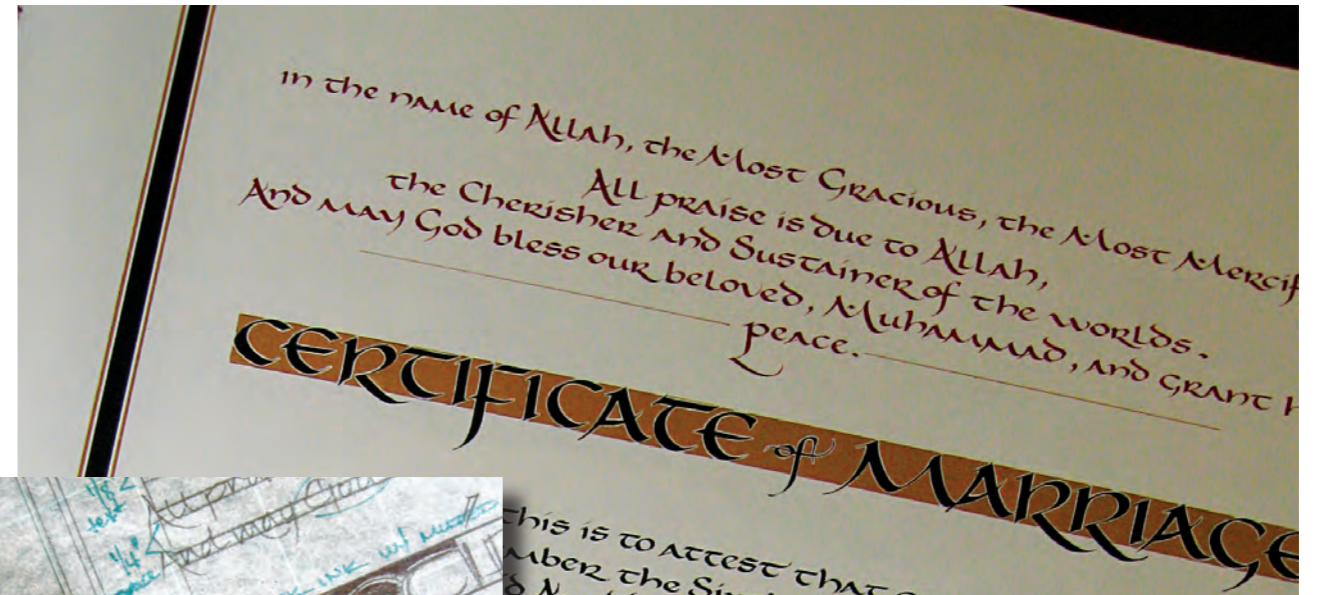 in the name of Allah, the Most Gracious, the Most Mercif
All praise is due to Allah,
the Cherisher and Sustainer of the worlds.
And may God bless our beloved, Muhammad, and grant h
peace.
CERTIFICATE of MARRIAGE
this is to attest that
mber the Si
d N
1/8
left
All pra
1/4"
And may God
INK w/